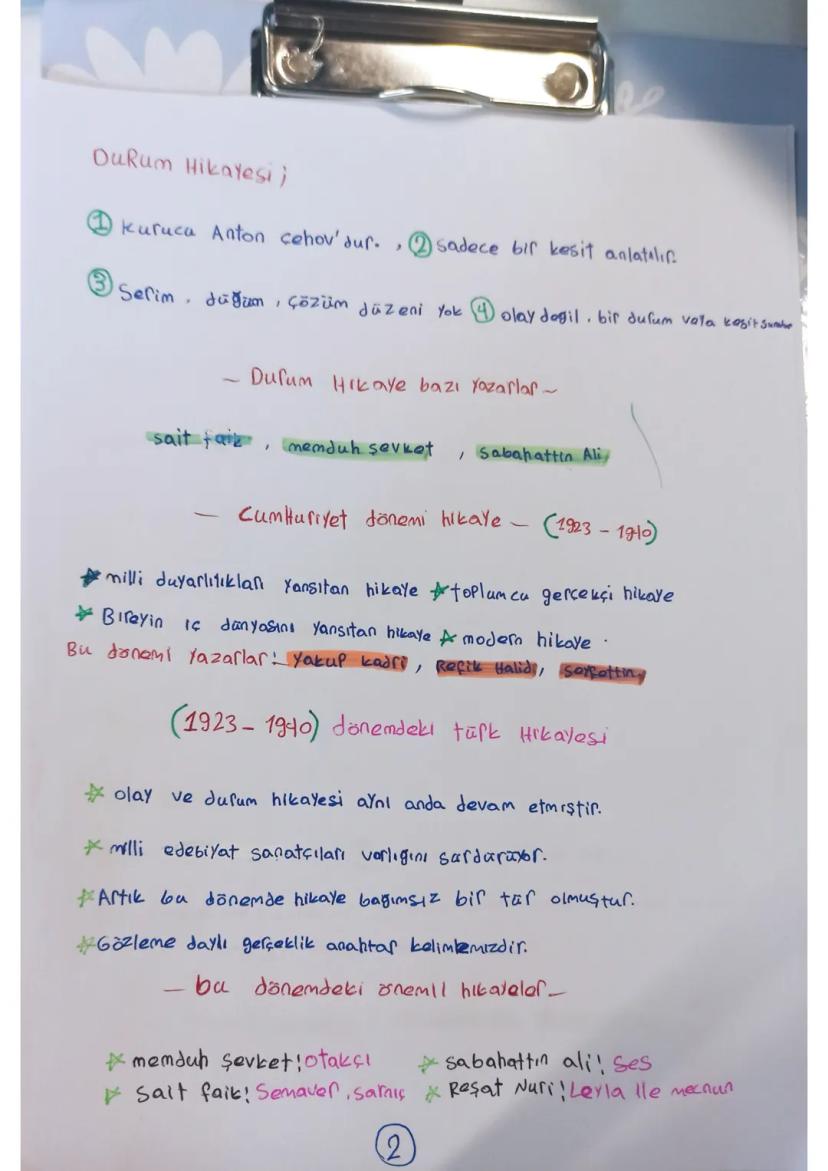 Durum Hikayesi;
① kurucu Anton çehov'dur. , ② sadece bir kesit anlatılır.
③ Serim , düğüm , çözüm düzeni yok ④ olay değil , bir durum veya kesit sunulur
~ Durum Hikaye bazı yazarlar ~
sait faik , memduh şevket , Sabahattin Ali
— Cumhuriyet dönemi hikaye — (1923 - 1940)
☆ milli duyarlılıkları yansıtan hikaye ☆ toplumcu gerçekçi hikaye
☆ Bireyin iç dünyasını yansıtan hikaye ☆ modern hikaye .
Bu dönemi yazarlar: yakup kadri , Refik Halid, seyfettin,
(1923 - 1940) dönemdeki türk Hikayesi
☆ olay ve durum hikayesi aynı anda devam etmiştir.
☆ milli edebiyat sanatçıları varlığını sürdürüyor.
☆ Artık bu dönemde hikaye bağımsız bir tür olmuştur.
☆ Gözleme daylı gerçeklik anahtar kelimemizdir.
— bu dönemdeki önemli hikayeler —
☆ memduh şevket: otakçı ☆ sabahattin ali: ses
☆ sait faik: Semaver , sarnıç ☆ Reşat Nuri: Leyla ile mecnun
②